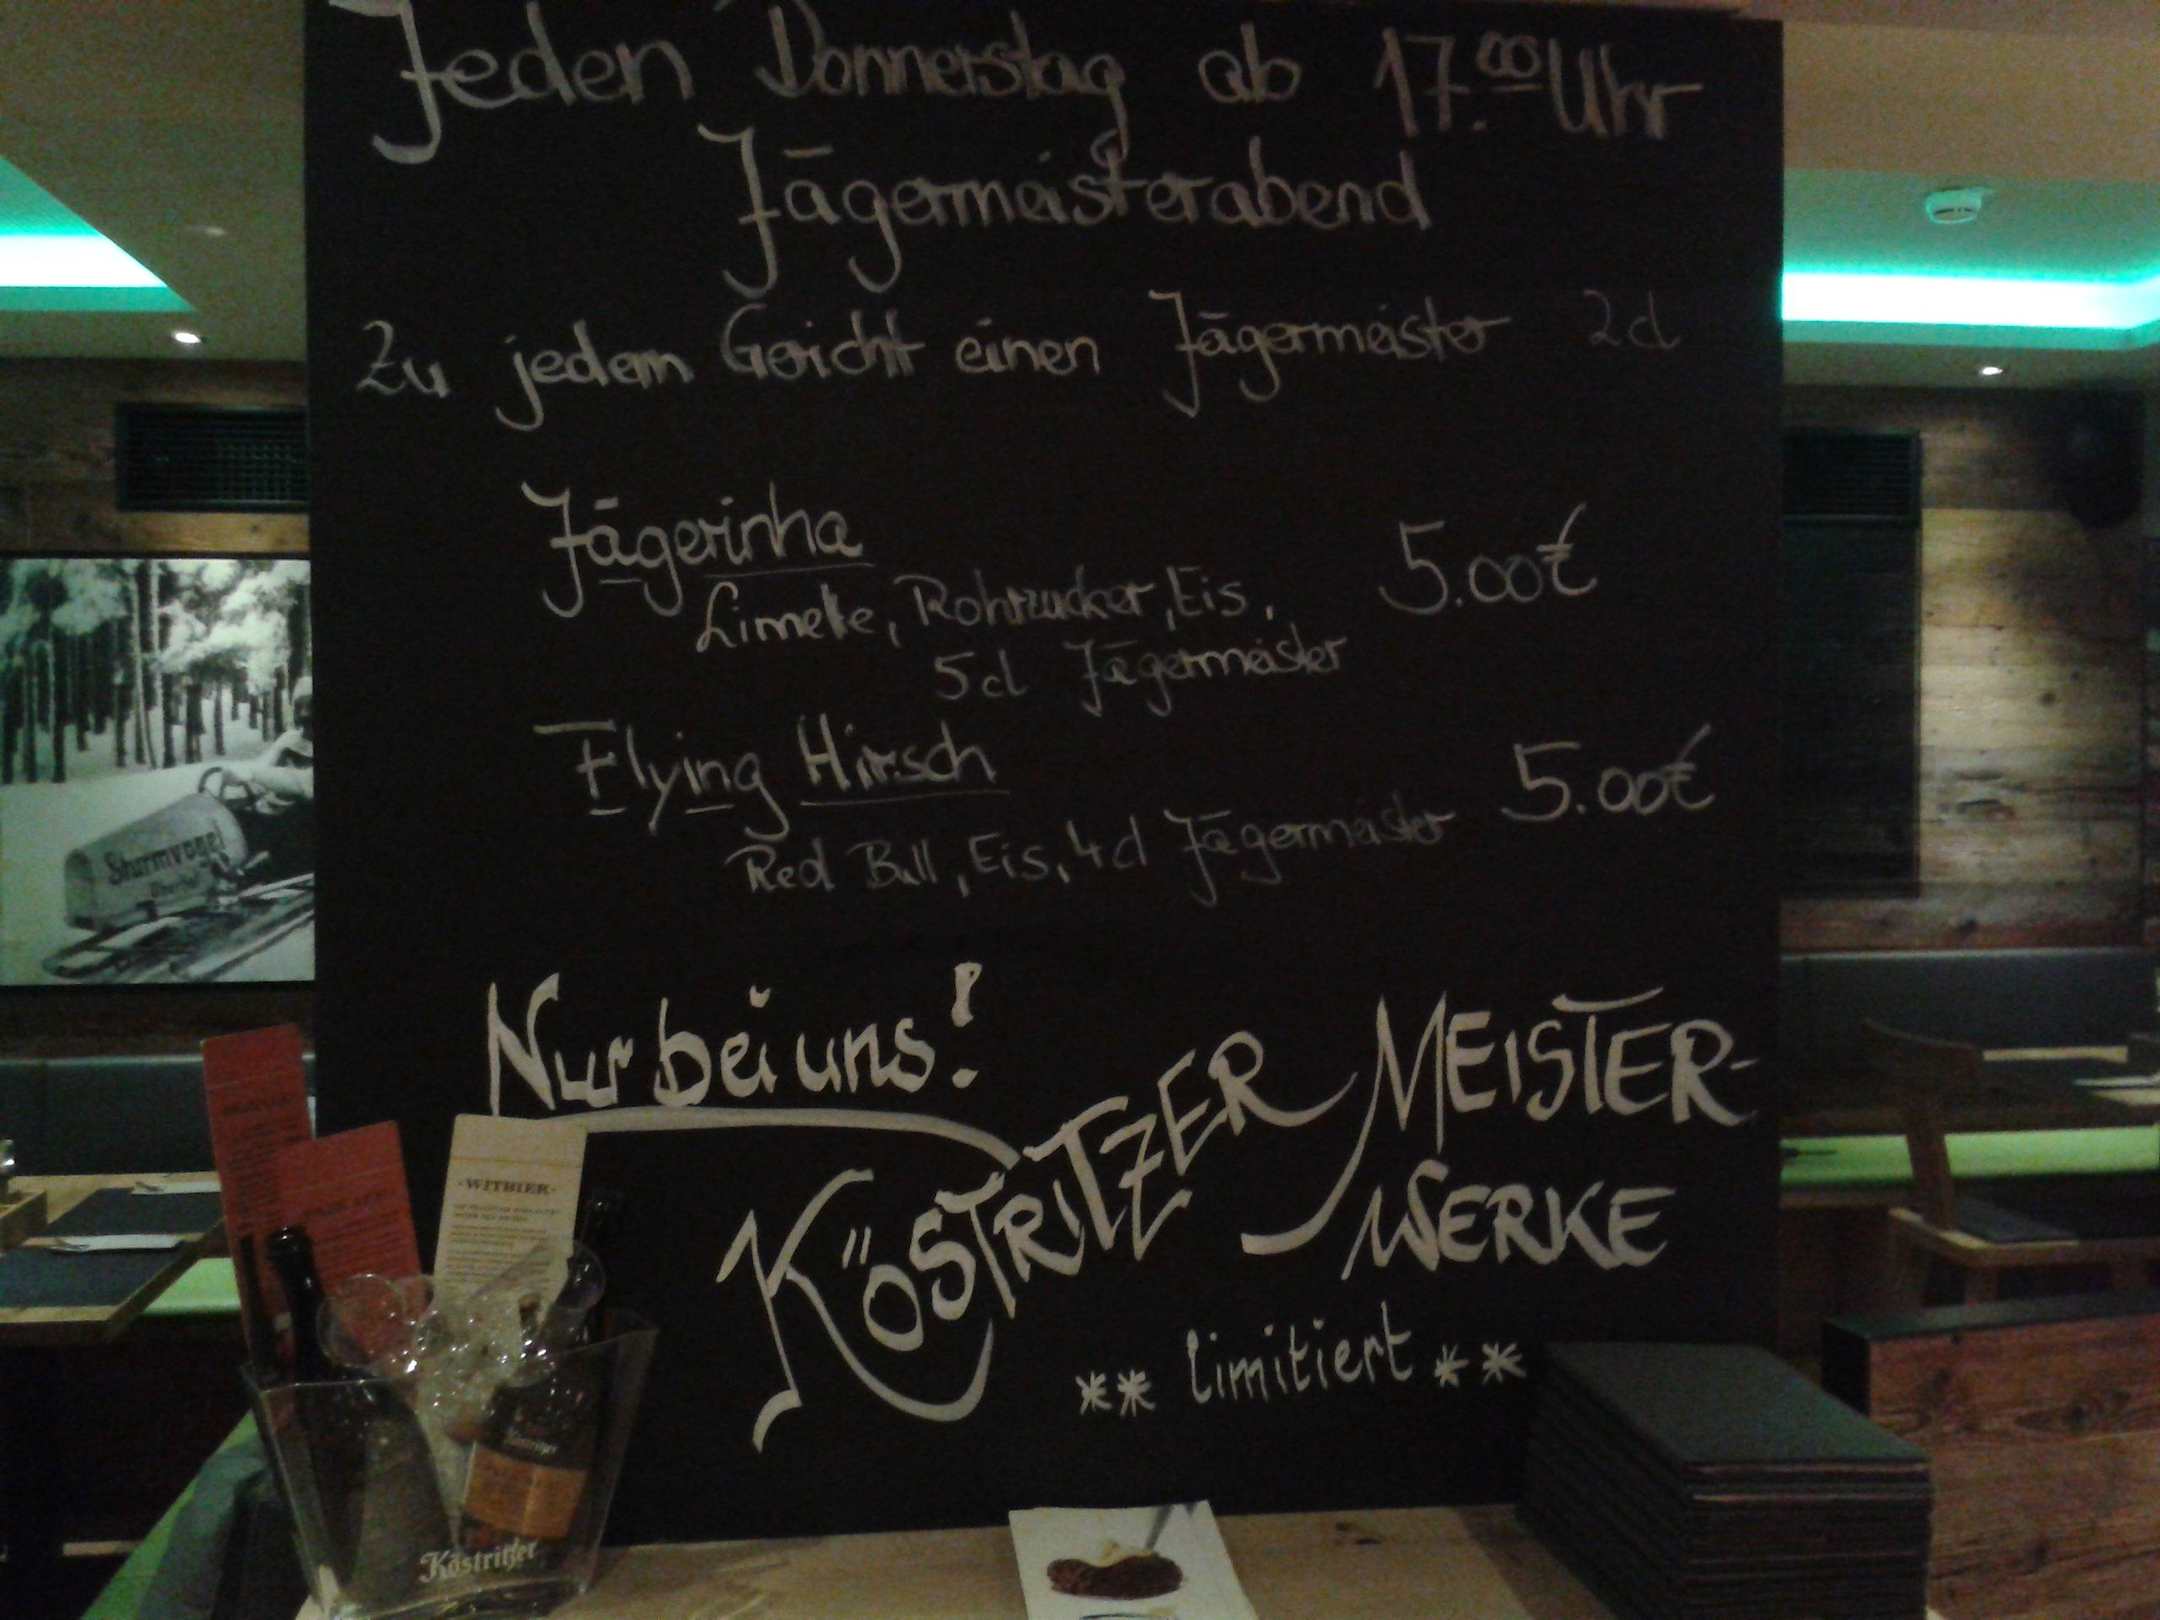 Jeden Donnerstag ab 17.00 Uhr
Jägermeisterabend
Zu jedem Gericht einen Jägermeister 2cl
Jägerinha
5.00€
Limette, Rohrzucker, Eis,
5cl Jägermeister
Flying Hirsch
5.00€
Red Bull, Eis, 4cl Jägermeister
Nur bei uns!
KÖSTRITZER MEISTER-
WERKE
** limitiert **
Sturmvogel
Oberhof
-WITBIER-
Köstritzer
Köstritzer